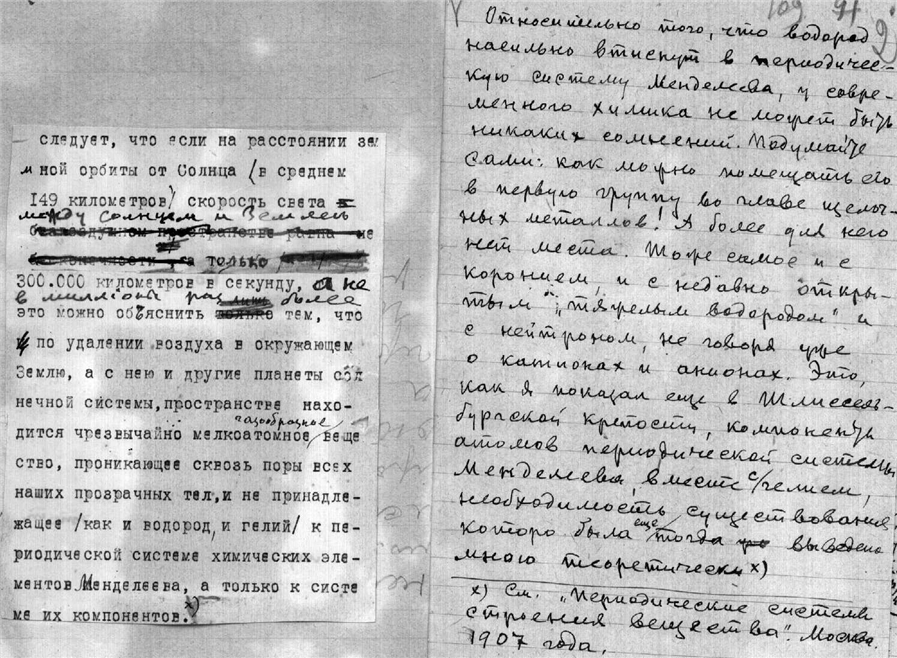 следует, что если на расстоянии зем
ной орбиты от Солнца /в среднем
149 километров/ скорость света в
между солнцем и Землею
безвоздушном пространстве равна не
а только
300.000 километров в секунду, а не
в миллионы раз более
это можно объяснить только тем, что
по удалении воздуха в окружающем
Землю, а с нею и другие планеты сол
нечной системы, пространстве нахо-
газообразное
дится чрезвычайно мелкоатомное веще
ство, проникающее сквозь поры всех
наших прозрачных тел, и не принадле-
жащее /как и водород, и гелий/ к пе-
риодической системе химических эле-
ментов Менделеева, а только к систе
ме их компонентов. х)
109 91
2
Относительно того, что водород
насильно втиснут в периодичес-
кую систему Менделеева, у совре-
менного химика не может быть
никаких сомнений. Подумайте
сами: как можно помещать его
в первую группу во главе щелоч-
ных металлов! А более для него
нет места. Тоже самое и с
коронием, и с недавно откры-
тым „тяжелым водородом" и
с нейтроном, не говоря уже
о катионах и анионах. Это,
как я показал еще в Шлиссель-
бургской крепости, компоненты
атомов периодической системы
Менделеева, вместе с гелием,
необходимость существования
которо была еще тогда выведена
мною теоретически х)
х) См. „Периодические системы
строения вещества". Москва.
1907 года.